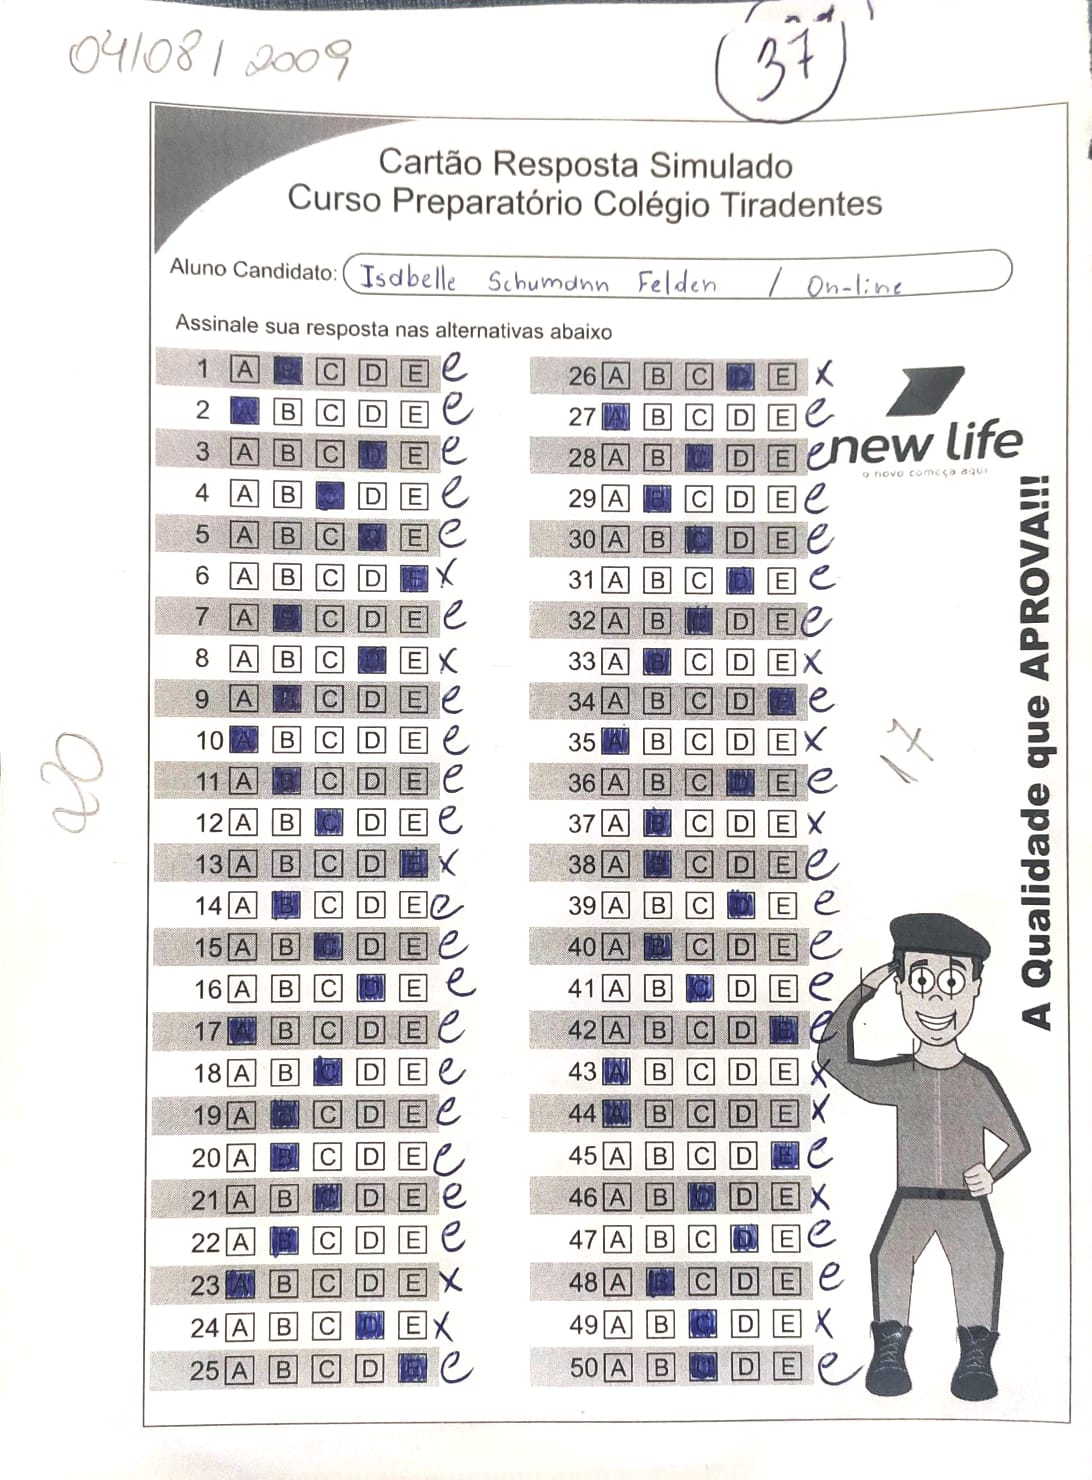 04/08/2009
37
Cartão Resposta Simulado
Curso Preparatório Colégio Tiradentes
Aluno Candidato: Isabelle Schumann Felden / On-line
Assinale sua resposta nas alternativas abaixo
1 A B C D E e
2 A B C D E e
3 A B C D E e
4 A B C D E e
5 A B C D E e
6 A B C D E x
7 A B C D E e
8 A B C D E x
9 A B C D E e
10 A B C D E e
11 A B C D E e
12 A B C D E e
13 A B C D E x
14 A B C D E e
15 A B C D E e
16 A B C D E e
17 A B C D E e
18 A B C D E e
19 A B C D E e
20 A B C D E e
21 A B C D E e
22 A B C D E e
23 A B C D E x
24 A B C D E x
25 A B C D E e
26 A B C D E x
27 A B C D E e
28 A B C D E e
29 A B C D E e
30 A B C D E e
31 A B C D E e
32 A B C D E e
33 A B C D E x
34 A B C D E e
35 A B C D E x
36 A B C D E e
37 A B C D E x
38 A B C D E e
39 A B C D E e
40 A B C D E e
41 A B C D E e
42 A B C D E e
43 A B C D E x
44 A B C D E x
45 A B C D E e
46 A B C D E x
47 A B C D E e
48 A B C D E e
49 A B C D E x
50 A B C D E e
new life
o novo começa aqui
A Qualidade que APROVA!!!
17